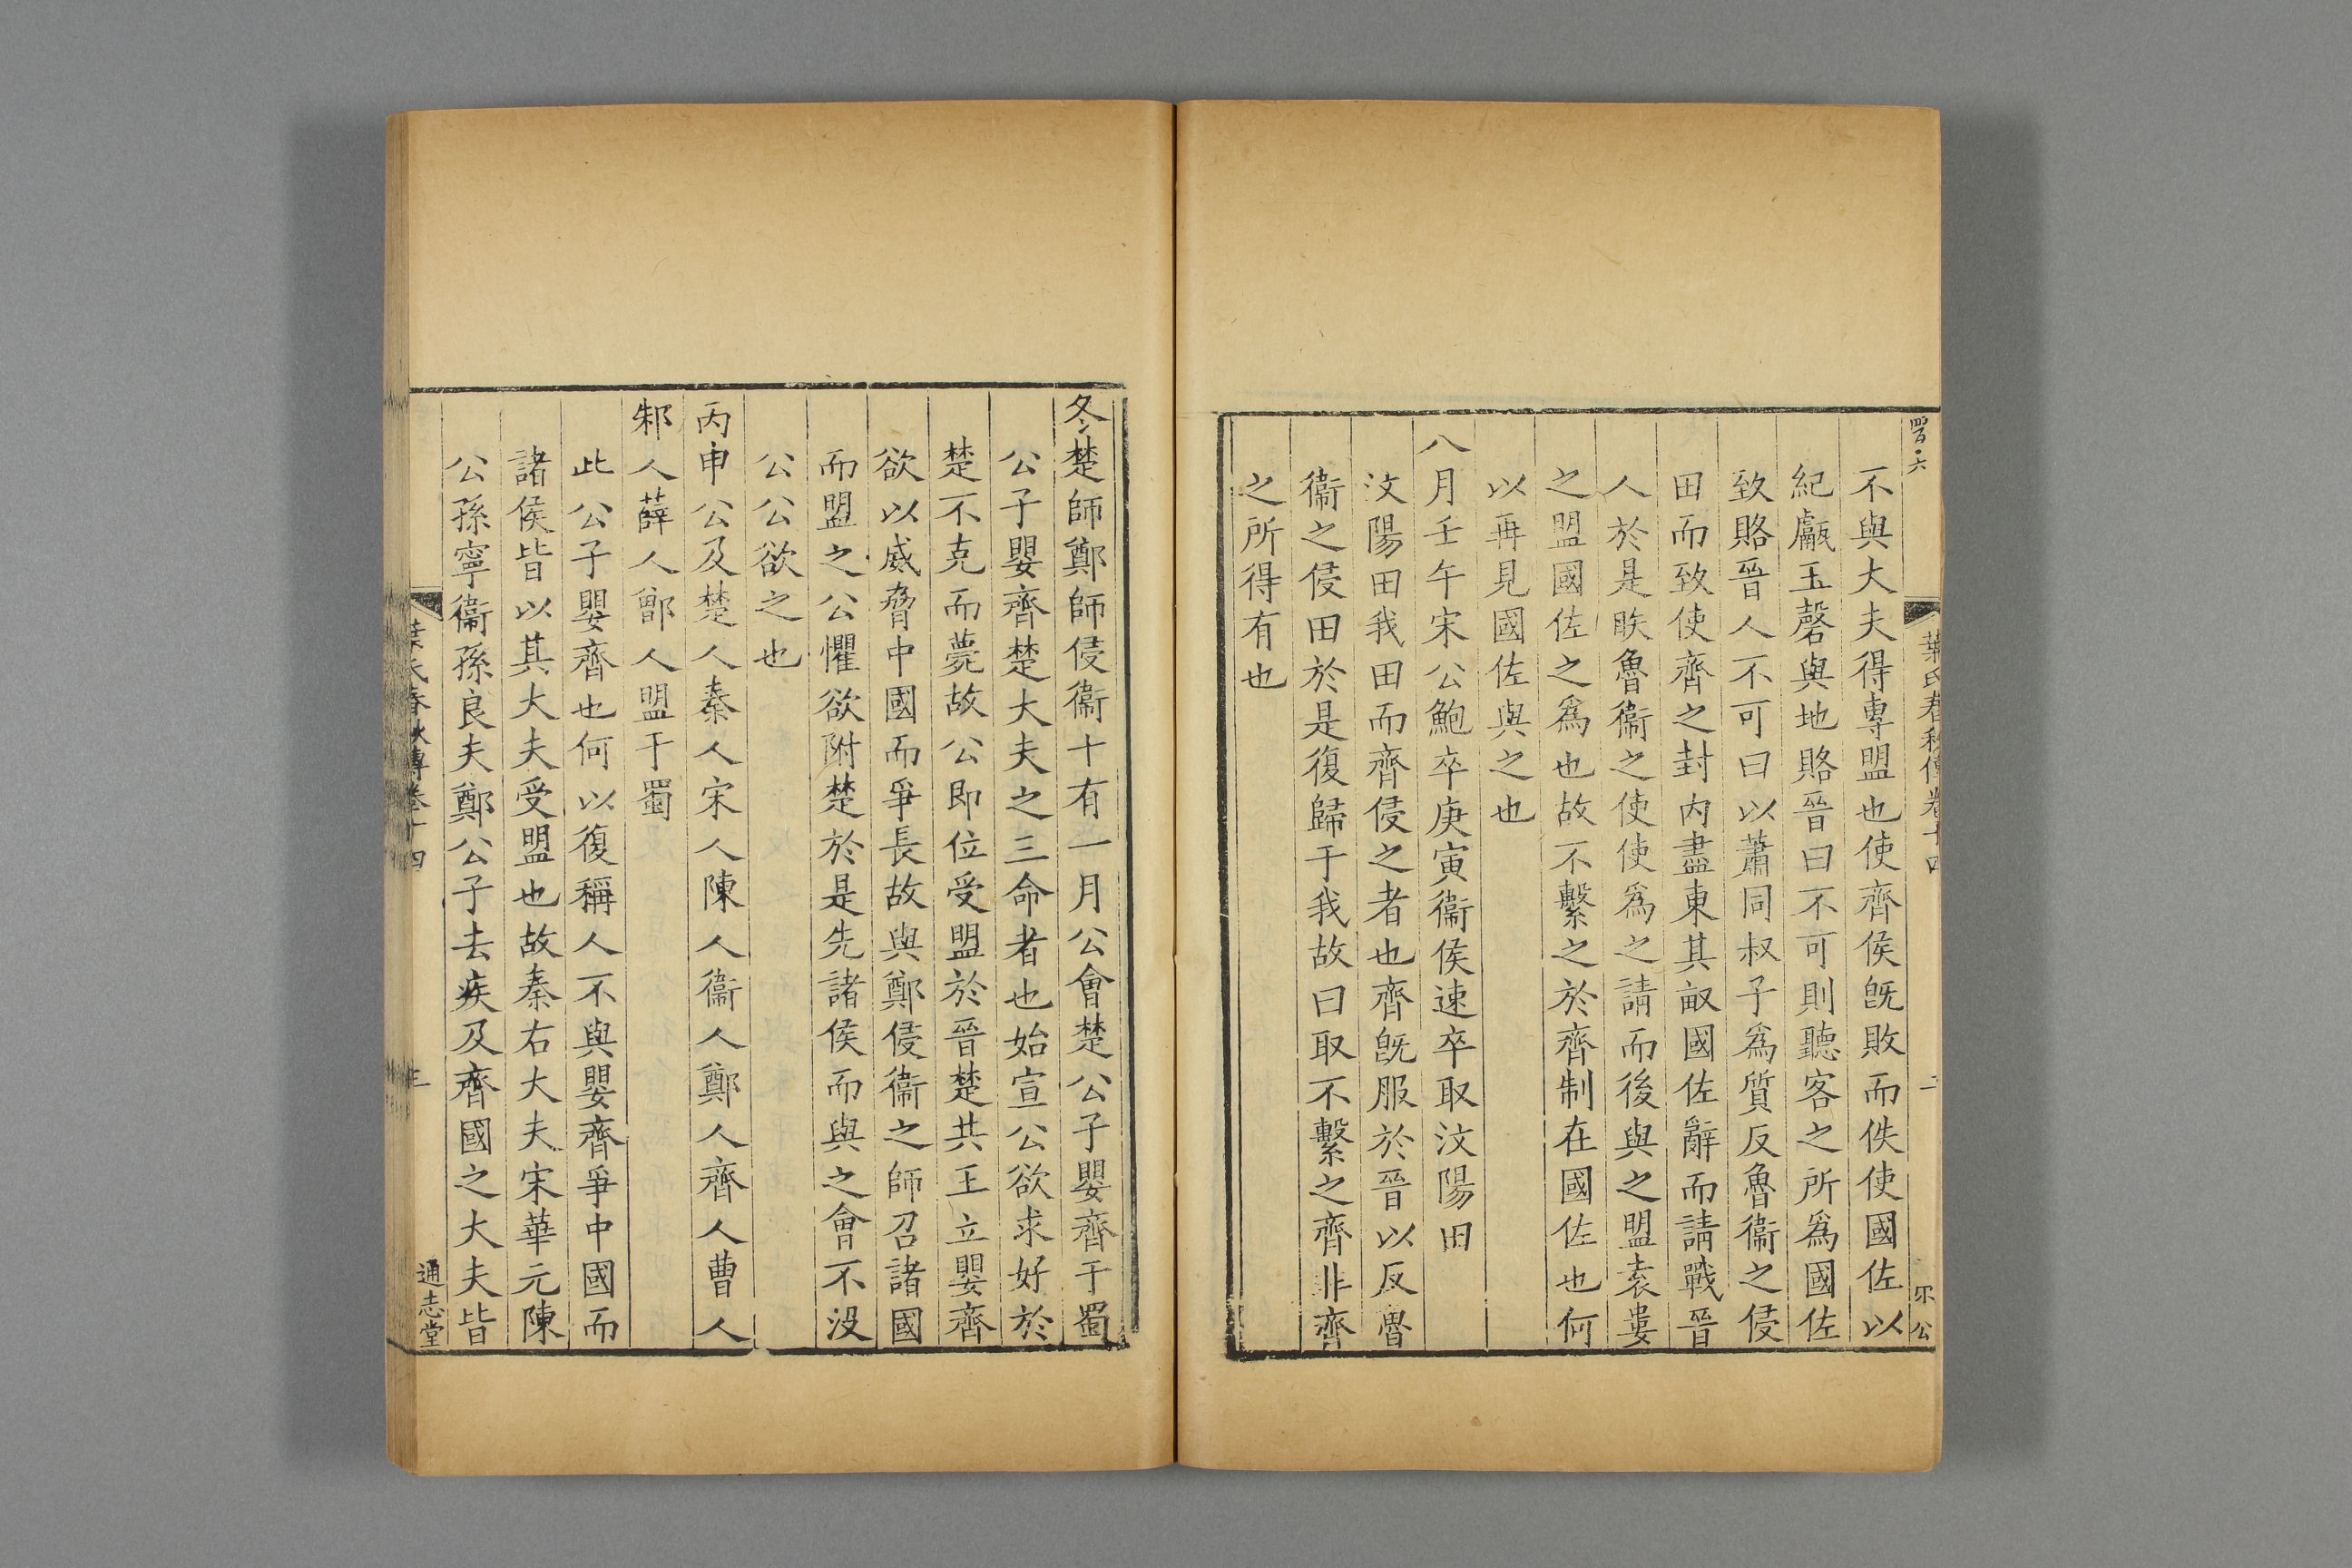 不與大夫得專盟也使齊侯旣敗而佚使國佐以
紀甗玉磬與地賂晉曰不可則聽客之所爲國佐
致賂晉人不可曰以蕭同叔子爲質反魯衞之侵
田而致使齊之封内盡東其畝國佐辭而請戰晉
人於是眣魯衞之使使爲之請而後與之盟袁婁
之盟國佐之爲也故不繫之於齊制在國佐也何
以再見國佐與之也
八月壬午宋公鮑卒庚寅衞侯速卒取汶陽田
汶陽田我田而齊侵之者也齊旣服於晉以反魯
衞之侵田於是復歸于我故曰取不繫之齊非齊
之所得有也
冬楚師鄭師侵衞十有一月公會楚公子嬰齊于蜀
公子嬰齊楚大夫之三命者也始宣公欲求好於
楚不克而薨故公即位受盟於晉楚共王立嬰齊
欲以威脅中國而爭長故與鄭侵衞之師召諸國
而盟之公懼欲附楚於是先諸侯而與之會不没
公公欲之也
丙申公及楚人秦人宋人陳人衞人鄭人齊人曹人
邾人薛人鄫人盟于蜀
此公子嬰齊也何以復稱人不與嬰齊爭中國而
諸侯皆以其大夫受盟也故秦右大夫宋華元陳
公孫寧衞孫良夫鄭公子去疾及齊國之大夫皆
葉氏春秋傳卷十四
三
通志堂